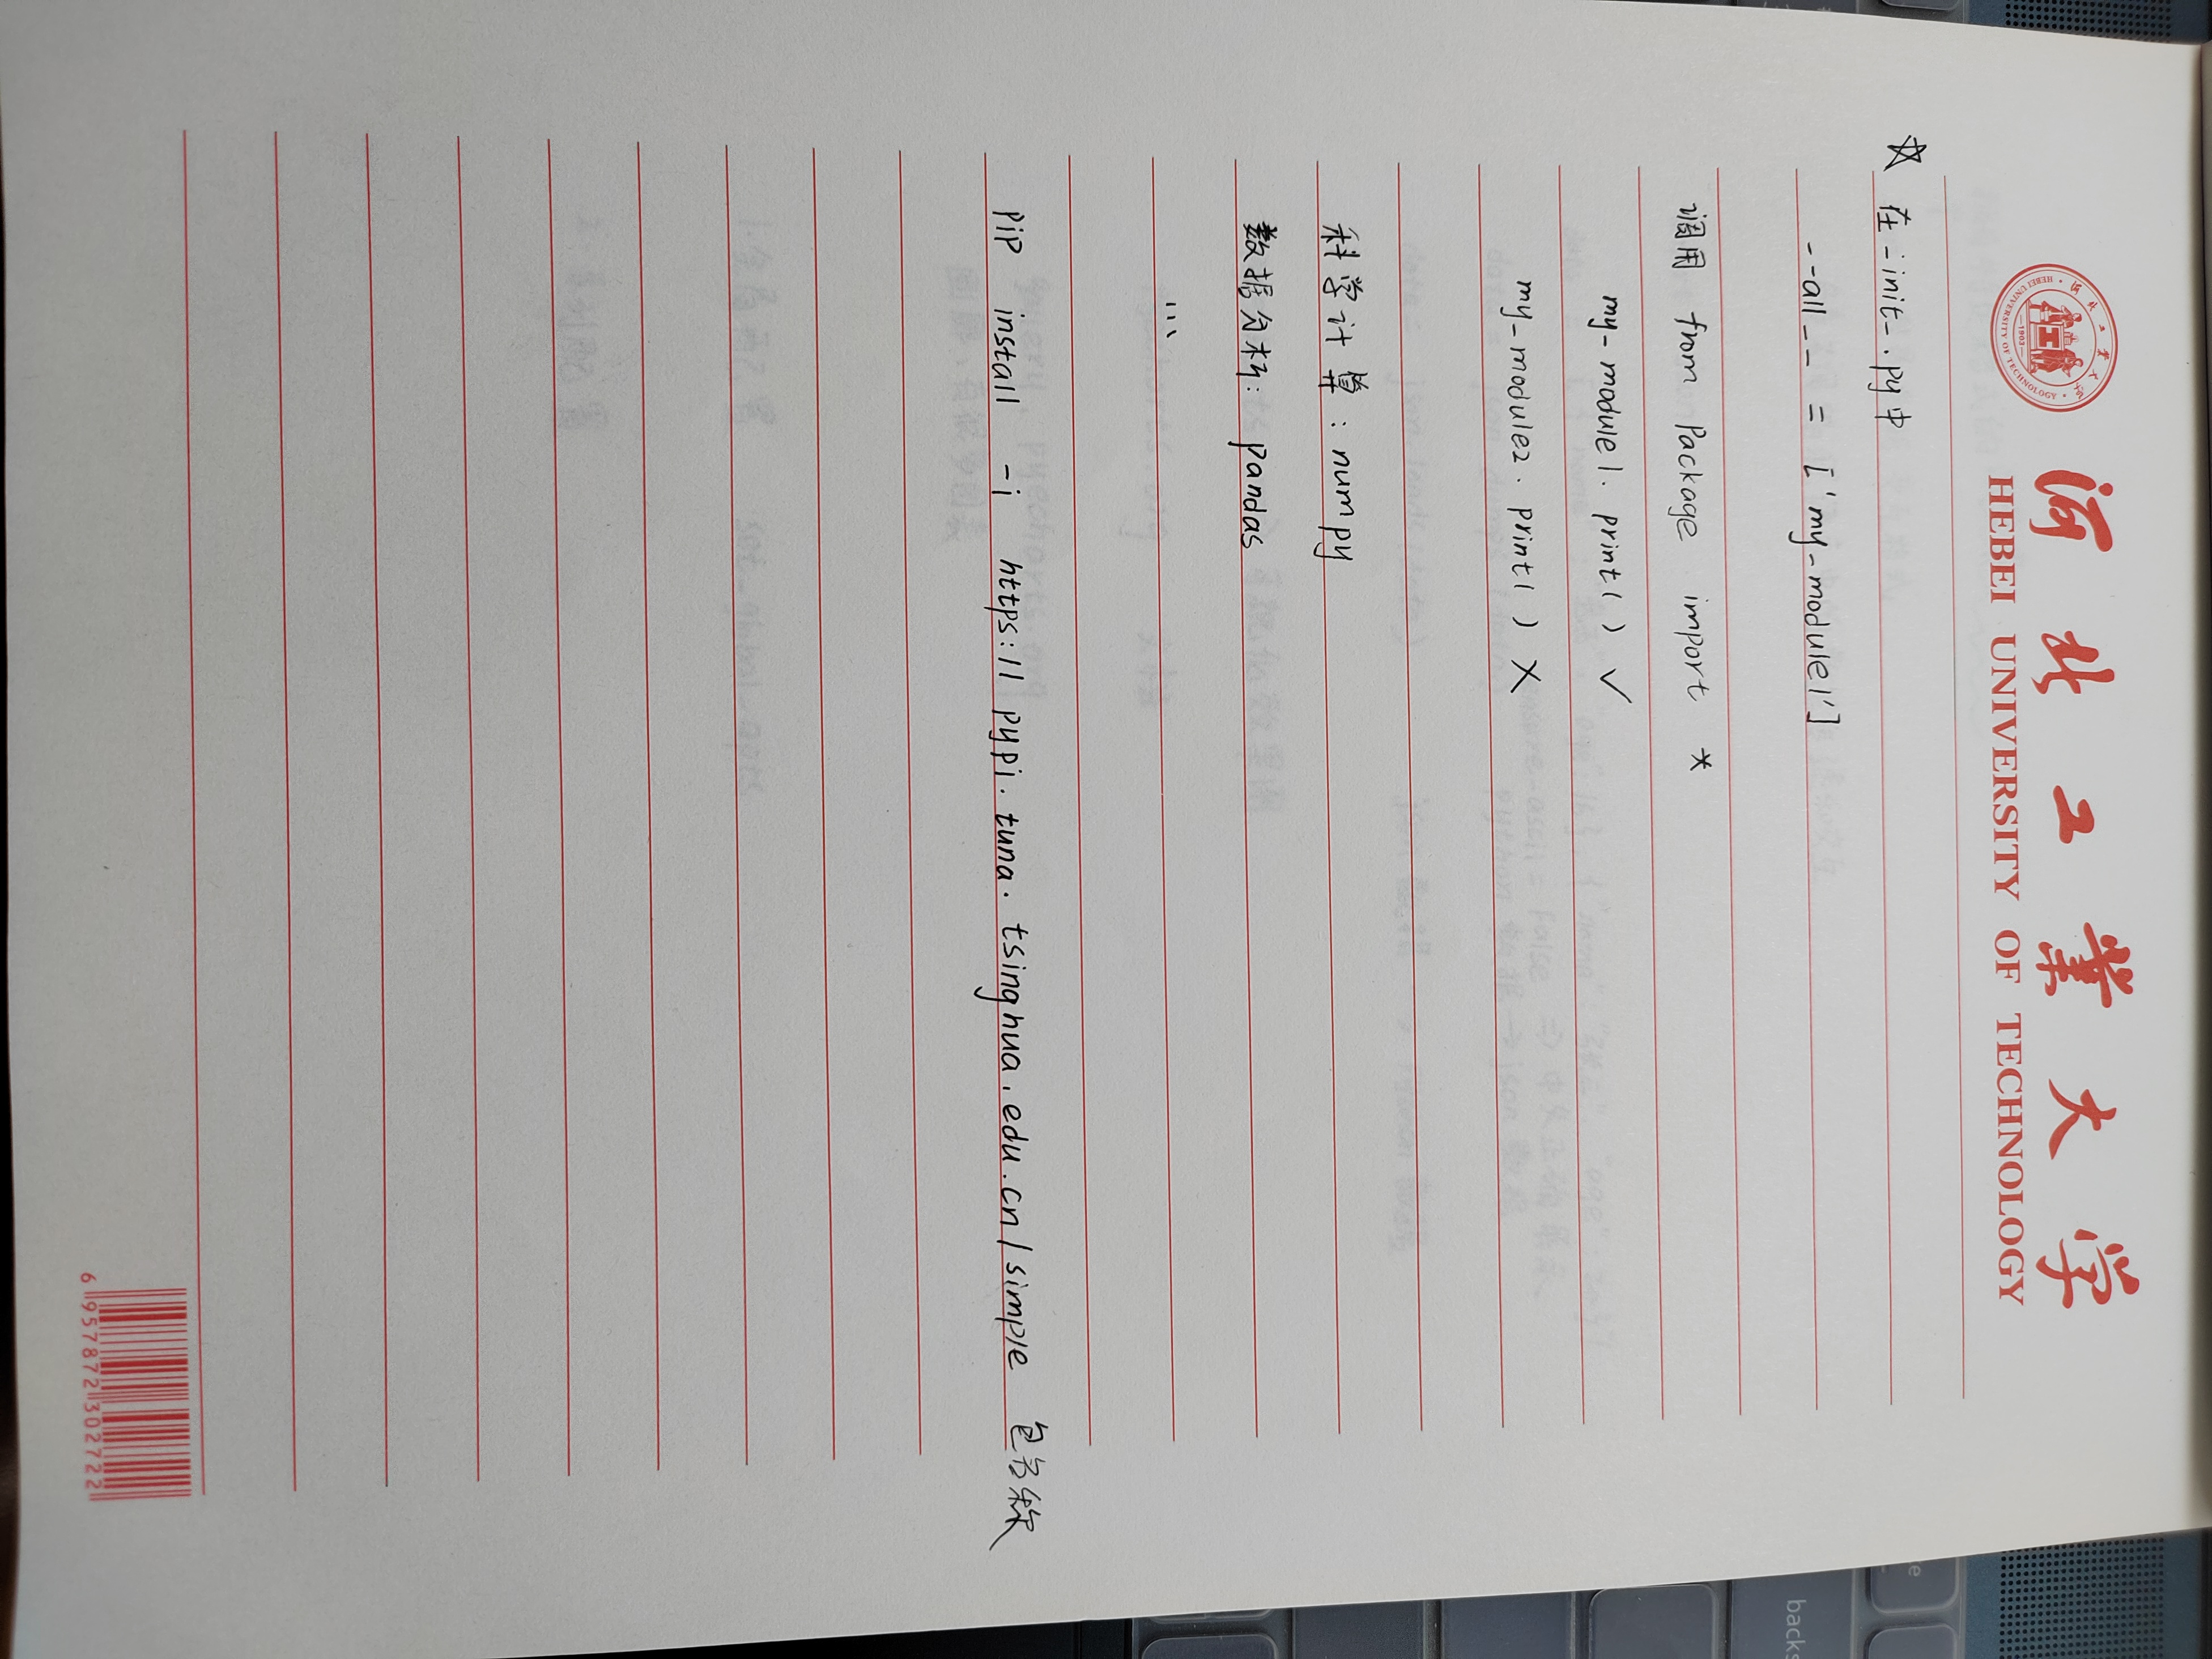 河北工業大学
HEBEI UNIVERSITY OF TECHNOLOGY
河北工業大学
HEBEI UNIVERSITY OF TECHNOLOGY
1903
☆ 在_init_.py中
__all__ = ['my_module1']
调用 from Package import *
my_module1. print( ) ✓
my_module2. print( ) ✗
科学计算: numpy
数据分析: pandas
...
PiP install -i https:// pypi. tuna. tsinghua. edu. cn/simple 包名称
6 957872 302722
backs